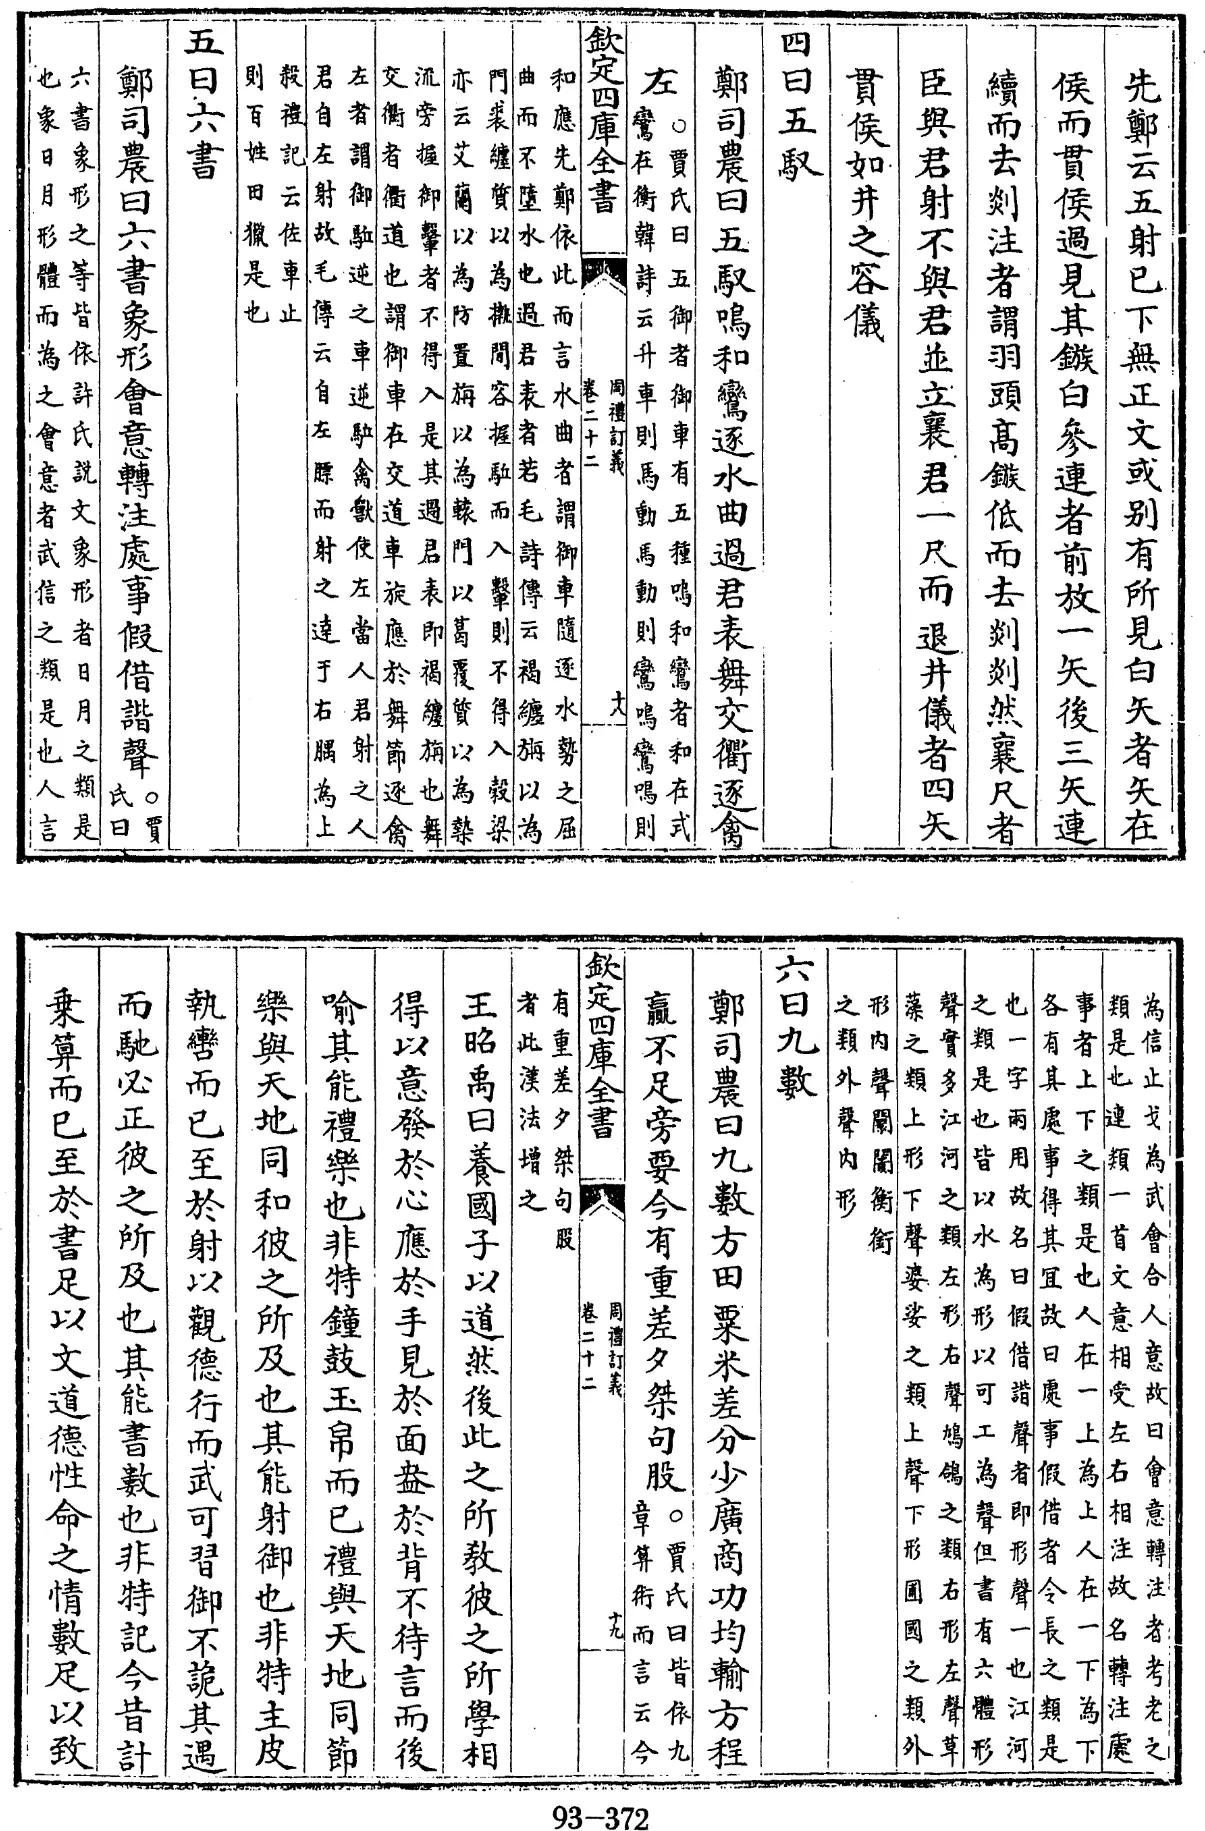 先鄭云五射已下無正文或别有所見白矢者矢在
侯而貫侯過見其鏃白參連者前放一矢後三矢連
續而去剡注者謂羽頭髙鏃低而去剡剡然襄尺者
臣與君射不與君並立襄君一尺而退井儀者四矢
貫侯如井之容儀
四曰五馭
鄭司農曰五馭鳴和鸞逐水曲過君表舞交衢逐禽
左
○賈氏曰五御者御車有五種鳴和鸞者和在式
鸞在衡韓詩云升車則馬動馬動則鸞鳴鸞鳴則
欽定四庫全書
周禮訂義
卷二十二
十八
和應先鄭依此而言水曲者謂御車隨逐水勢之屈
曲而不墮水也過君表者若毛詩傳云褐纏旃以為
門裘纏質以為槸間容握駈而入轚則不得入穀梁
亦云艾蘭以為防置旃以為轅門以葛覆質以為槷
流旁握御轚者不得入是其過君表即褐纏旃也舞
交衢者衢道也謂御車在交道車旋應於舞節逐禽
左者謂御駈逆之車逆駈禽獸使左當人君射之人
君自左射故毛傳云自左膘而射之達于右腢為上
殺禮記云佐車止
則百姓田獵是也
五曰六書
鄭司農曰六書象形會意轉注處事假借諧聲
○賈
氏曰
六書象形之等皆依許氏説文象形者日月之類是
也象日月形體而為之會意者武信之類是也人言
為信止戈為武會合人意故曰會意轉注者考老之
類是也連類一首文意相受左右相注故名轉注處
事者上下之類是也人在一上為上人在一下為下
各有其處事得其宜故曰處事假借者令長之類是
也一字兩用故名曰假借諧聲者即形聲一也江河
之類是也皆以水為形以可工為聲但書有六體形
聲實多江河之類左形右聲鳩鴿之類右形左聲草
藻之類上形下聲婆娑之類上聲下形圃國之類外
形内聲闤闠衡銜
之類外聲内形
六曰九數
鄭司農曰九數方田粟米差分少廣商功均輸方程
贏不足旁要今有重差夕桀句股
○賈氏曰皆依九
章算術而言云今
欽定四庫全書
周禮訂義
卷二十二
十九
有重差夕桀句股
者此漢法增之
王昭禹曰養國子以道然後此之所教彼之所學相
得以意發於心應於手見於面盎於背不待言而後
喻其能禮樂也非特鐘鼓玉帛而已禮與天地同節
樂與天地同和彼之所及也其能射御也非特主皮
執轡而已至於射以觀德行而武可習御不詭其遇
而馳必正彼之所及也其能書數也非特記今昔計
乗算而已至於書足以文道德性命之情數足以致
93-372